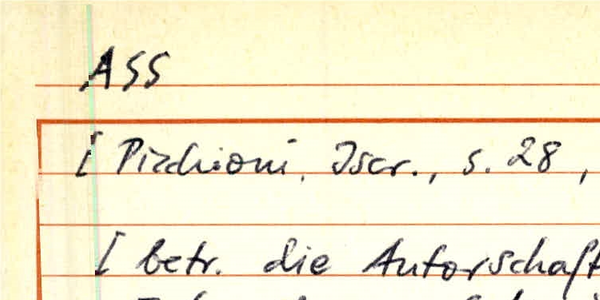 ASS
[ Picchioni, Iscr., s. 28,
[ betr. die Autorschaft